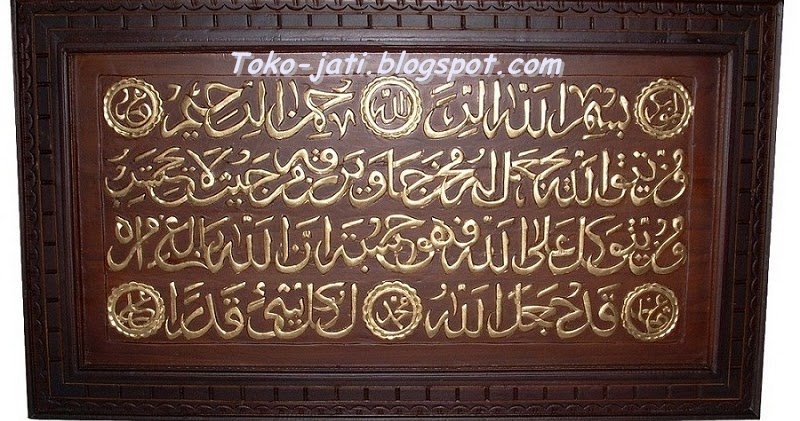 Toko-jati.blogspot.com
ابوبكر بسم الله الرحمن الله الرحيم عمر
ومن يتق الله يجعل له مخرجا ويرزقه من حيث لا يحتسب
ومن يتوكل على الله فهو حسبه ان الله بالغ امره
عثمان قد جعل الله محمد لكل شيئ قدرا علي